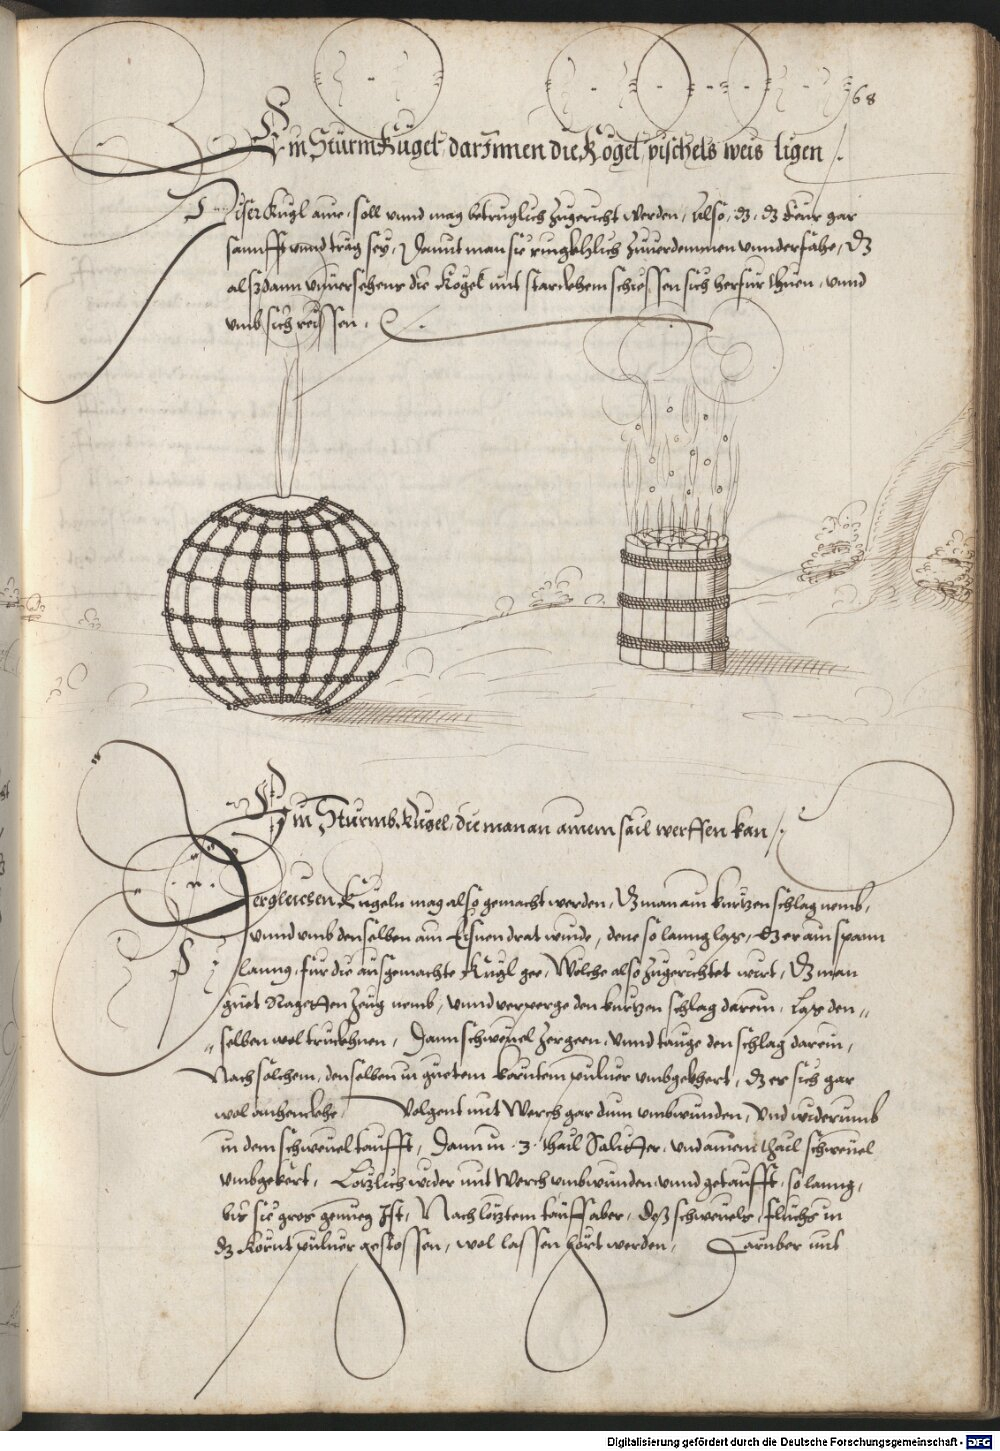 68
Ein Sturm Kugel, darInnen die Kögel pischels weis ligen /.
Diser Kugl aine, soll vnnd mag betruglich Zugericht werden, Also, dz, dz feur gar
sannfft vnnd träg sey, Damit man sie ringkhlich Zuuerdemmen vnnderfahe, dz
alszdann vnuersehenns die Kögel mit starckhem schiessen sich herfür thuen, vnnd
vmb sich reissen.
Ein Sturmb Kugel, die man an ainem sail werffen kan /.
Dergleichen Kugeln mag also gemacht werden, dz man ain kurtzen schlag nemb,
vnnd vmb denselben ain Eisnen drat winde, dene so lanng lass, dz er ain spann
lanng, für die ausgemachte Kugl gee, Welche also Zugerichtet wirt, dz man
guet Zeug nemb, vnnd verperge den kurtzen schlag darein, Lass den„
„ selben wol truckhnen, Dann schweuel Zergeen, vnnd tauge den schlag darein,
Nach solchem, denselben in guetem korntem puluer vmbgekhert, dz er sich gar
wol anhenckhe, Volgent mit Werch gar dün vmbwunden, Vnd widerumb
in dem schweuel taufft, Dann in .3. thail Saliter, vnd ainem thail schweuel
vmbgekert, Lötzlich wider mit Werch vmbwunden, vnnd getaufft, so lanng,
bis sie gros genueg Ist, Nach lötztem tauff aber, dess schweuels, fluchs in
dz Kornt puluer gestossen, wol lassen hört werden, Daruber mit
Digitalisierung gefördert durch die Deutsche Forschungsgemeinschaft - DFG